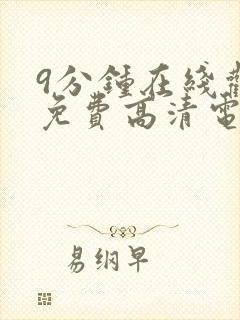 9分鍾在綫
免費高清電
易纲早